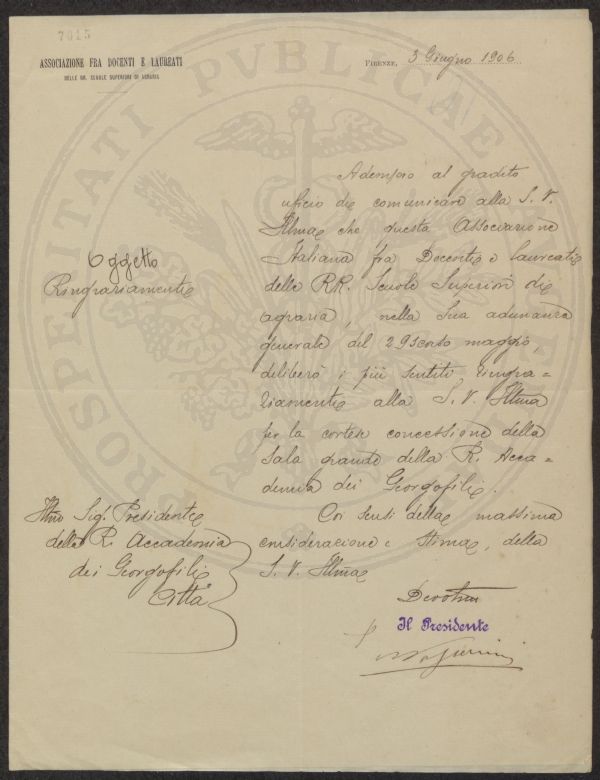 7015
ASSOCIAZIONE FRA DOCENTI E LAUREATI
DELLE RR. SCUOLE SUPERIORI DI AGRARIA
FIRENZE, 3 Giugno 1906
PROSPERITATI PVBLICAE
Adempio al gradito
uficio di comunicare alla S. V.
Illma che questa Associazione
Italiana fra Docenti e laureati
delle RR. Scuole Superiori di
agraria, nella sua adunanza
generale del 29 scorso maggio
deliberò i più sentiti ringra=
ziamenti alla S. V. Illma
per la cortese concessione della
sala grande della R. Acca=
demia dei Georgofili.
Coi sensi della massima
considerazione e stima, della
S. V. Illma
Oggetto
Ringraziamenti
Illmo Sig. Presidente
della R. Accademia
dei Georgofili
Città
Devotmo
Il Presidente